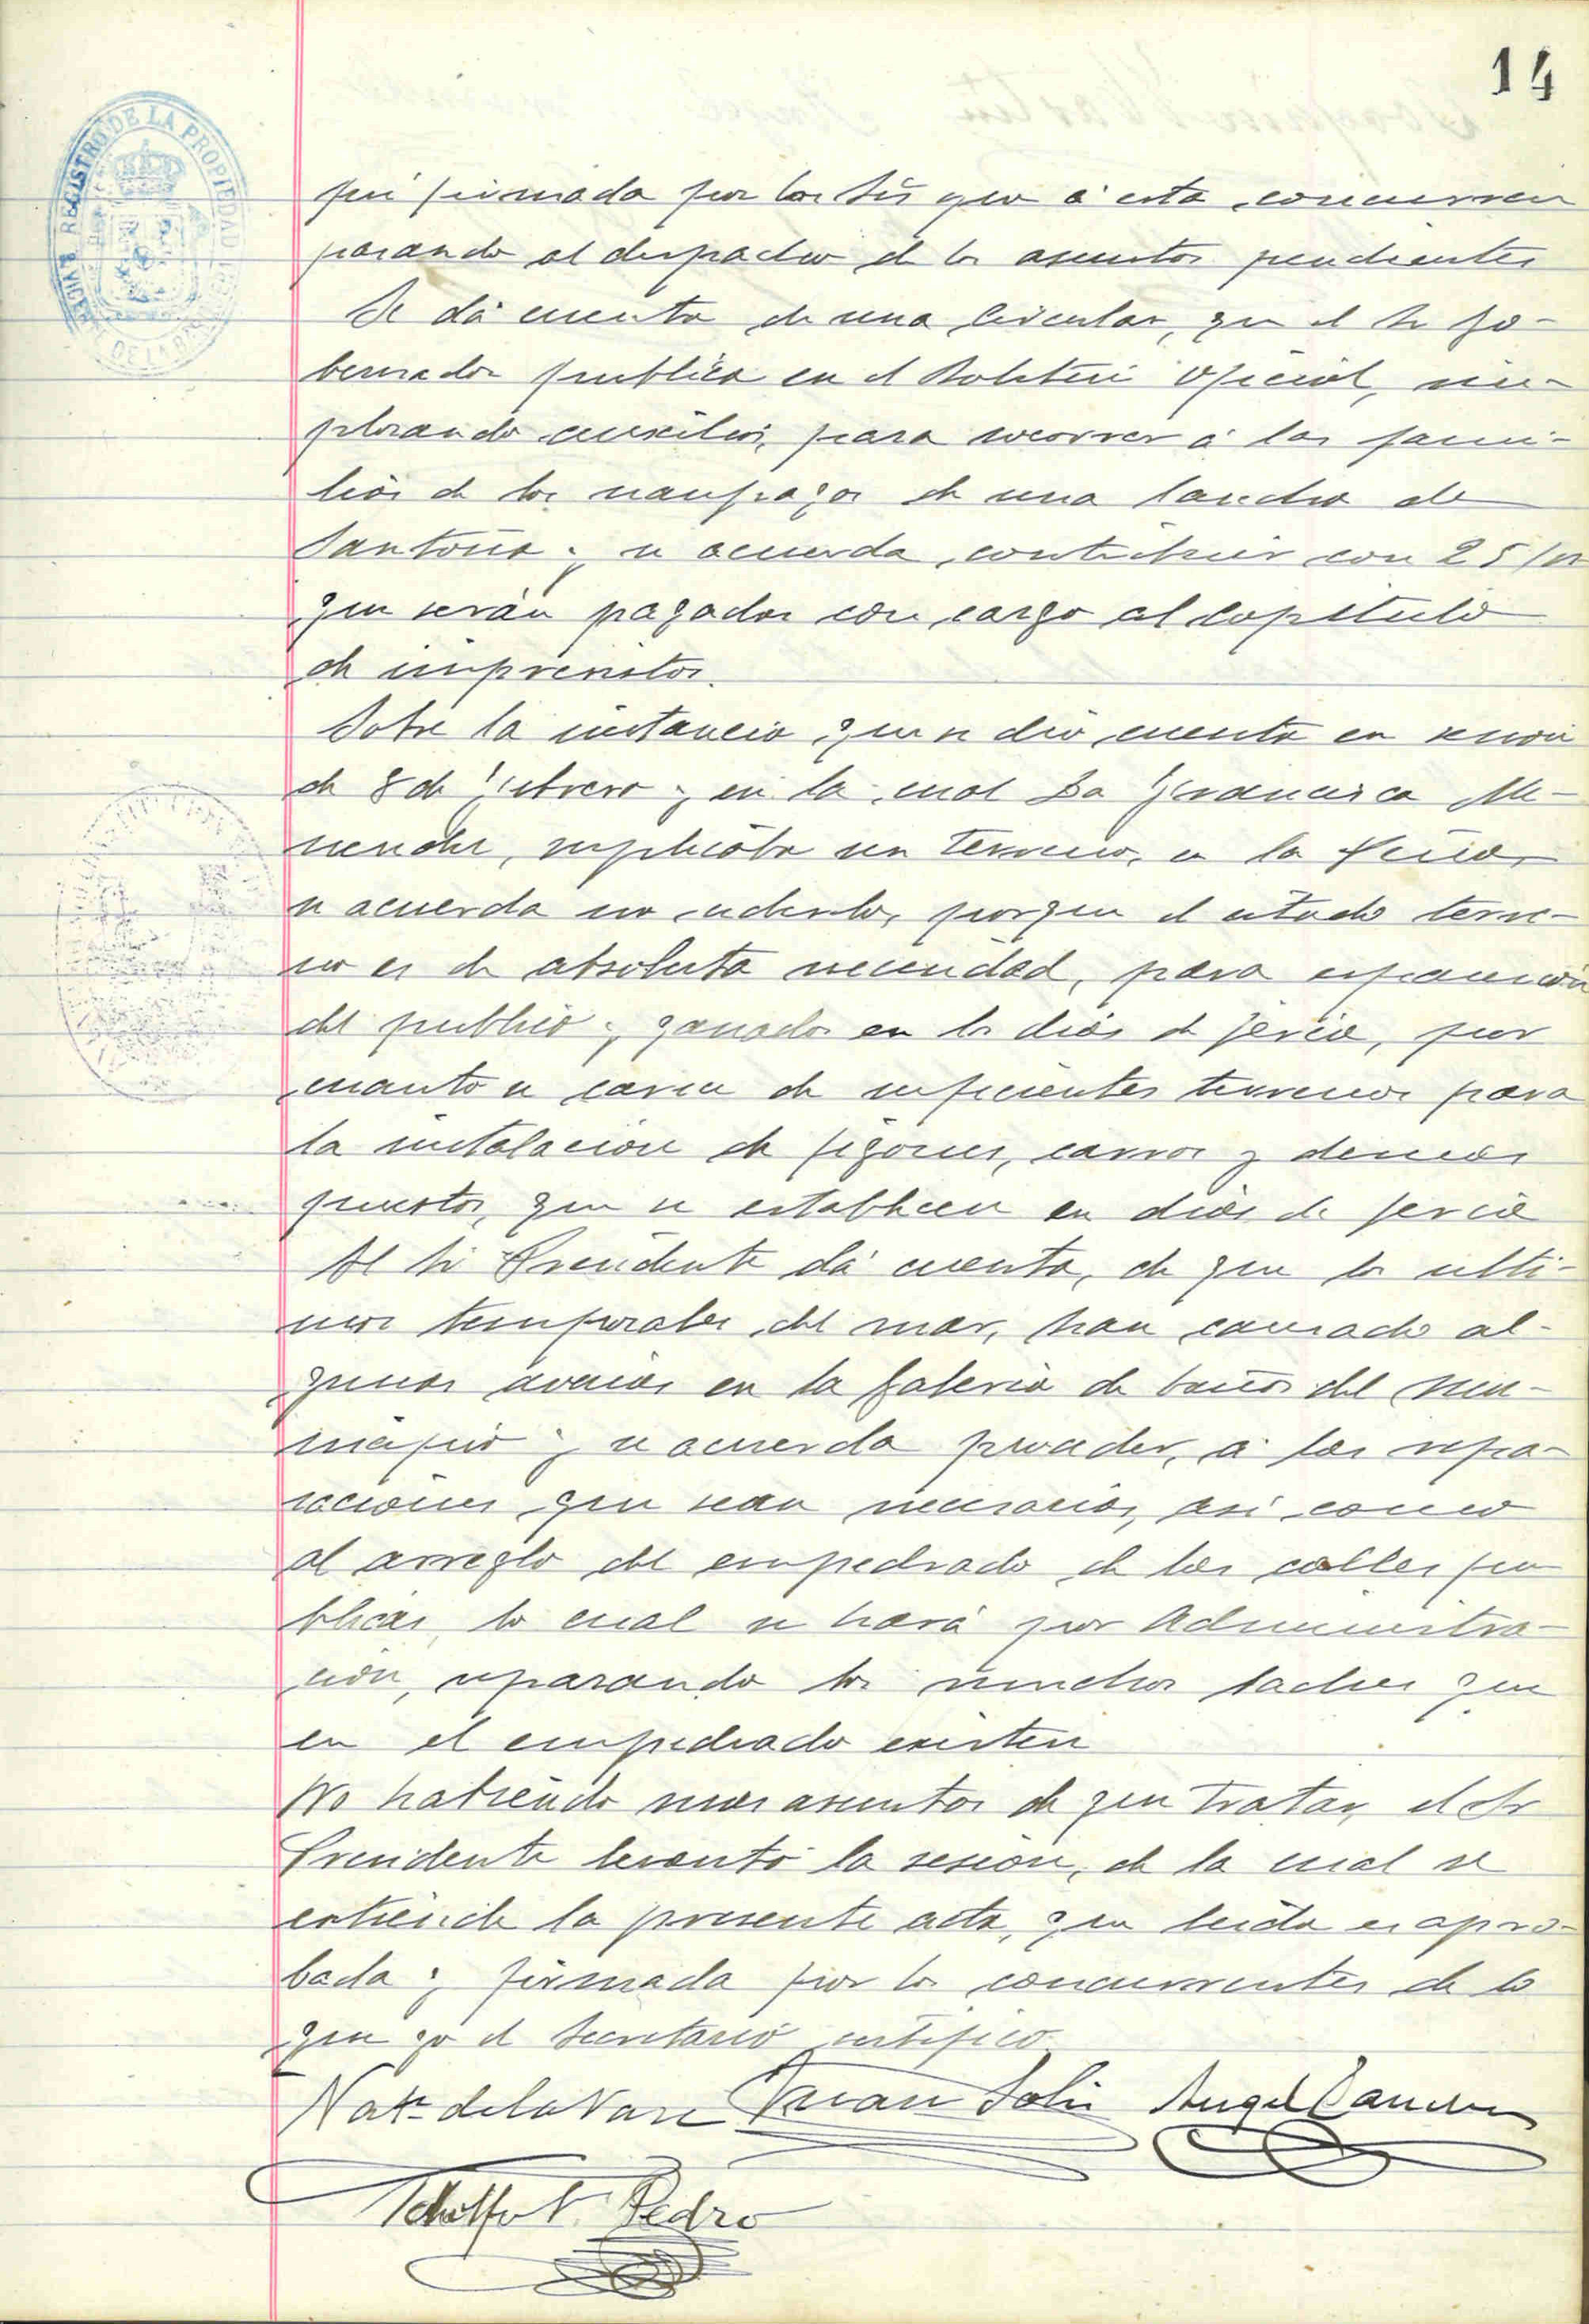 14
REGISTRO DE LA PROPIEDAD
fué firmada por los Srs que á esta concurren
pasando al despacho de los asuntos pendientes
Se dá cuenta de una Circular, que el Sr Go-
bernador publica en el Boletin Oficial, im-
plorando auxilios, para socorrer á las fami-
lias de los naufragos de una lancha de
Santoña y se acuerda contribuir con 25
que serán pagadas con cargo al capitulo
de imprevistos.
Sobre la instancia que se dió cuenta en sesion
de 8 de Febrero y en la cual Da Francisca Me-
nendez, suplicaba un terreno, en la
se acuerda no cederlo, porque el citado terre-
no es de absoluta necesidad, para expansión
del publico y ganados en los dias de feria, por
cuanto se carece de suficientes terrenos para
la instalacion de figones, carros y demas
puestos, que se establecen en dias de feria
El Sr Presidente dá cuenta, de que los ulti-
mos temporales del mar, han causado al-
gunas averias en la Galeria de baños del mu-
nicipio y se acuerda proceder, á las repa-
raciones que sean necesarias, asi como
al arreglo del empedrado de las calles pu
blicas, lo cual se hará por Administra-
ción, reparando los muchos baches que
en el empedrado existen
No habiendo mas asuntos de que tratar, el Sr
Presidente levantó la sesion, de la cual se
extiende la presente acta, que leida es apro-
bada y firmada por los concurrentes de lo
que yo el Secretario certifico
Nat. de la Vare Juan Solis Angel
Pedro